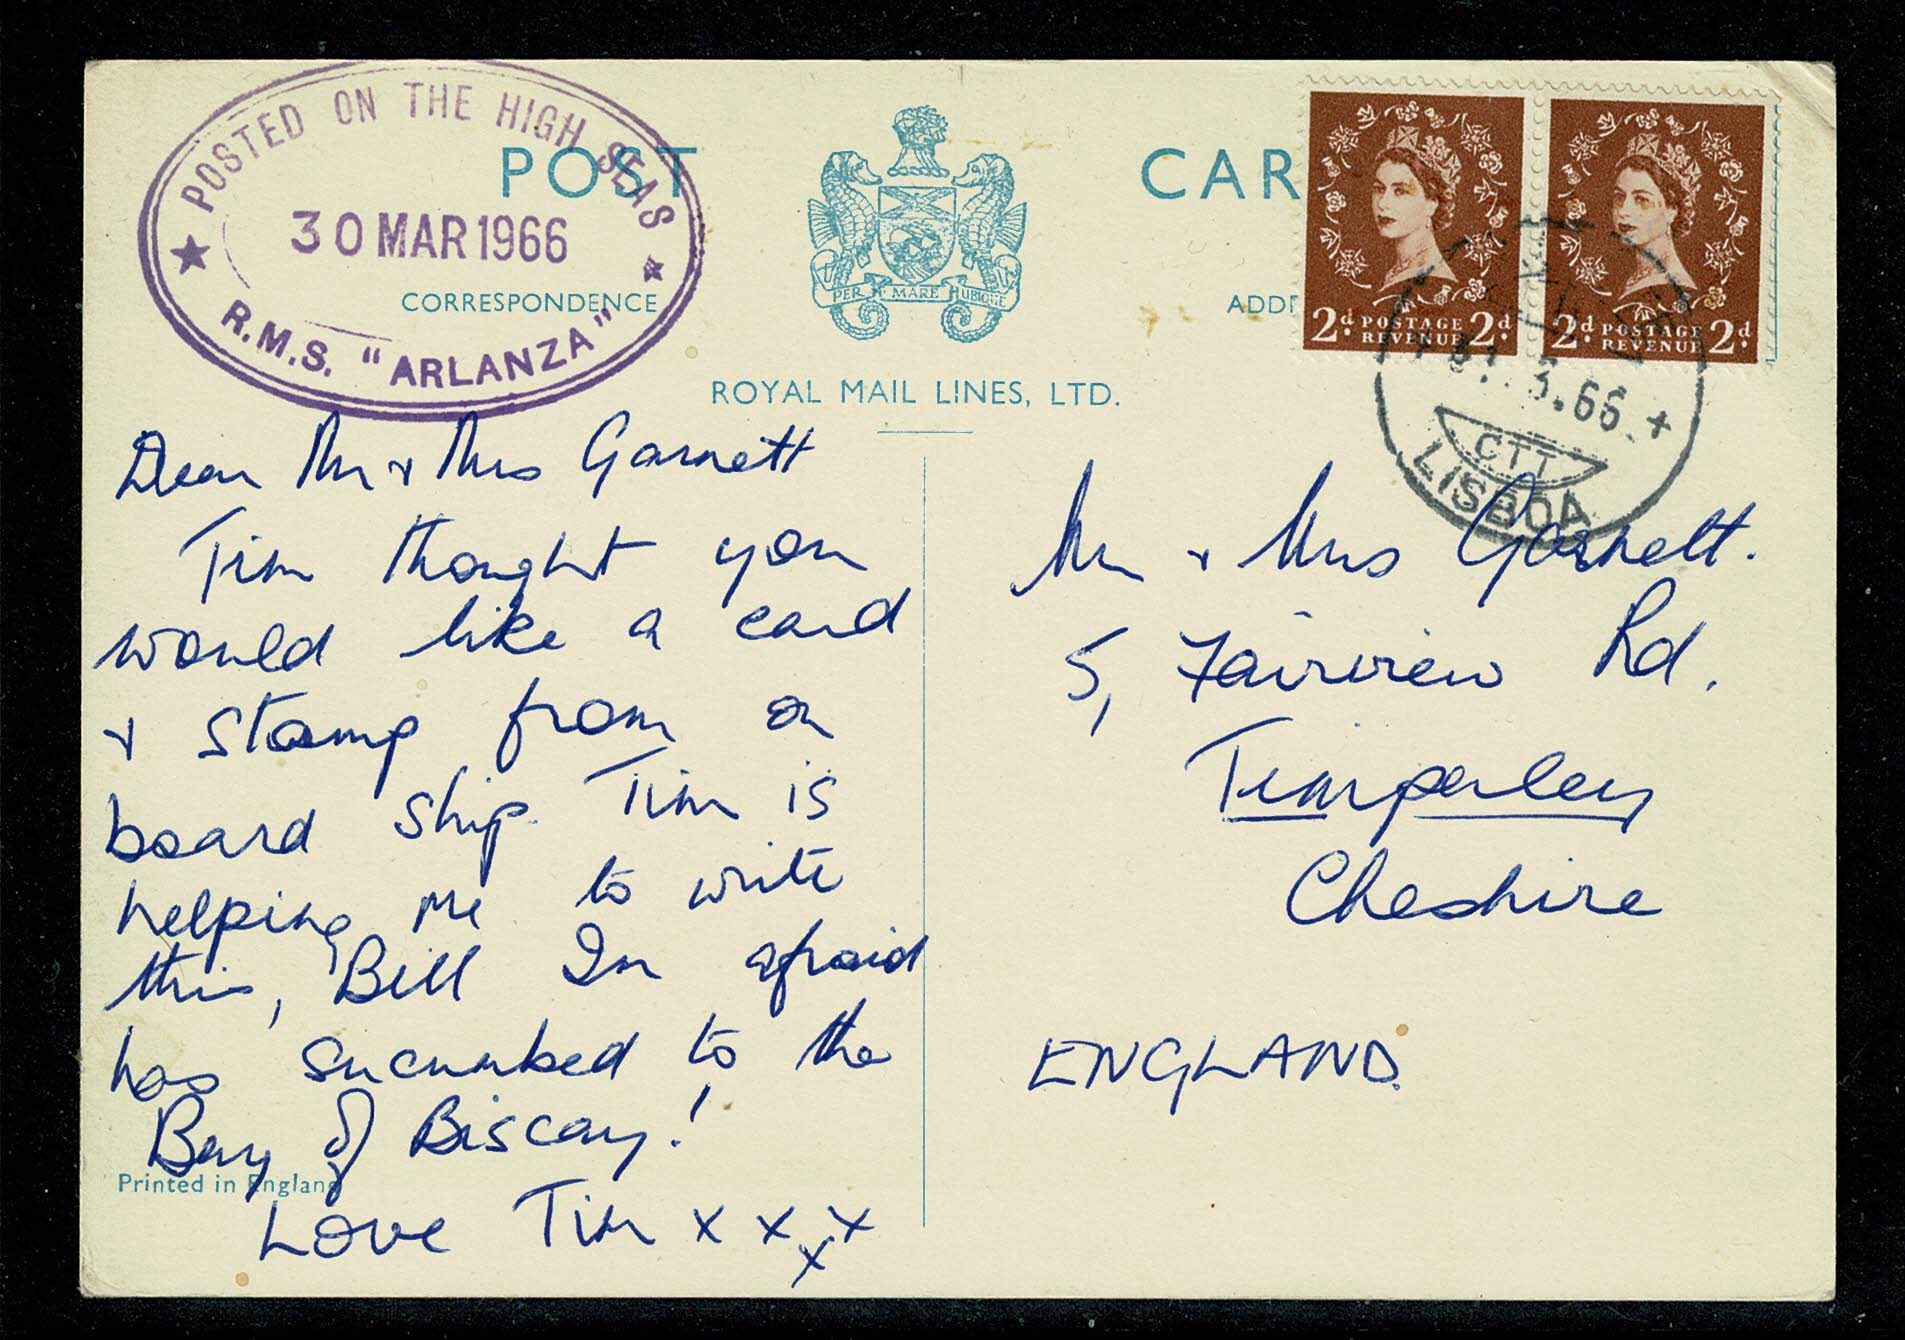 POSTED ON THE HIGH SEAS
30 MAR 1966
R.M.S. "ARLANZA"
POST CAR
CORRESPONDENCE
ADD
PER MARE UBIQUE
ROYAL MAIL LINES, LTD.
2d POSTAGE REVENUE 2d
2d POSTAGE REVENUE 2d
3.66 +
CTT
LISBOA
Dear Mr & Mrs Garnett
Tim thought you
would like a card
& stamp from on
board ship. Tim is
helping me to write
this, Bill Im afraid
has sucumbed to the
Bay of Biscay!
Love Tim x x x x
Printed in England
Mr & Mrs Garnett.
5, Fairview Rd.
Timperley
Cheshire
ENGLAND.